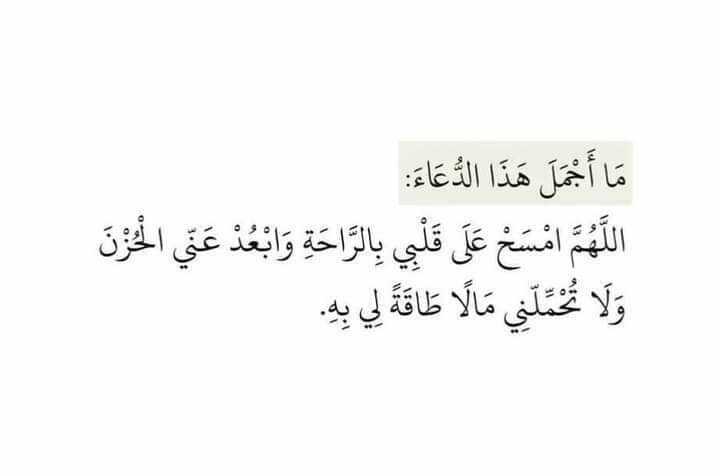 مَا أَجْمَلَ هَذَا الدُّعَاءَ:
اللَّهُمَّ امْسَحْ عَلَى قَلْبِي بِالرَّاحَةِ وَابْعُدْ عَنّي الْحُزْنَ
وَلَا تُحْمِّلّنِي مَالًا طَاقَةً لِي بِهِ.